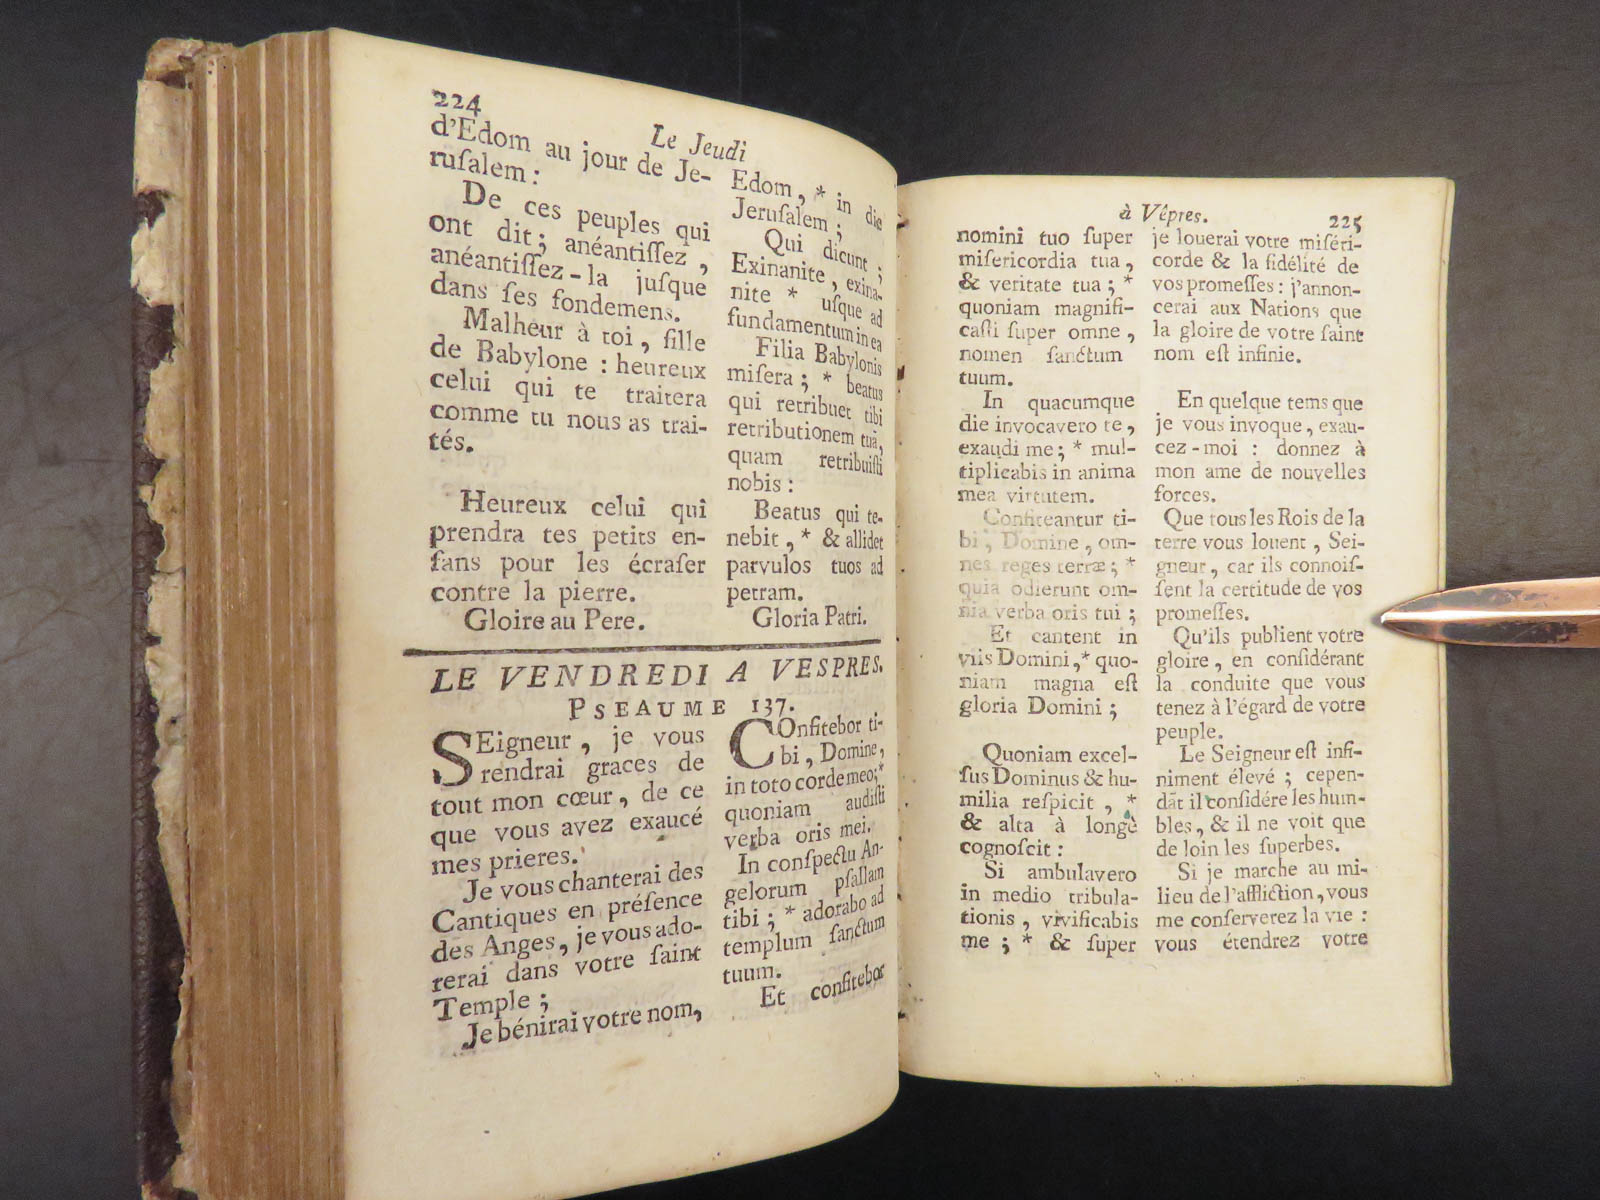 224
Le Jeudi
d'Edom au jour de Je-
ruſalem :
De ces peuples qui
ont dit ; anéantiſſez ,
anéantiſſez-la juſque
dans ſes fondemens.
Malheur à toi , fille
de Babylone : heureux
celui qui te traitera
comme tu nous as trai-
tés.
Heureux celui qui
prendra tes petits en-
fans pour les écraſer
contre la pierre.
Gloire au Pere.
Edom , * in die
Jeruſalem ;
Qui dicunt ;
Exinanite , exina-
nite * uſque ad
fundamentum in ea
Filia Babylonis
miſera ; * beatus
qui retribuet tibi
retributionem tuā,
quam retribuiſti
nobis :
Beatus qui te-
nebit , * & allidet
parvulos tuos ad
petram.
Gloria Patri.
LE VENDREDI A VESPRES.
PSEAUME 137.
SEigneur , je vous
rendrai graces de
tout mon cœur, de ce
que vous avez exaucé
mes prieres.
Je vous chanterai des
Cantiques en préſence
des Anges, je vous ado-
rerai dans votre ſaint
Temple ;
Je bénirai votre nom,
COnfitebor ti-
bi , Domine,
in toto corde meo;*
quoniam audiſti
verba oris mei.
In conſpectu An-
gelorum pſallam
tibi ; * adorabo ad
templum ſanctum
tuum.
Et confitebor
à Vêpres.
225
nomini tuo ſuper
miſericordia tua ,
& veritate tua ; *
quoniam magnifi-
caſti ſuper omne ,
nomen ſanctum
tuum.
In quacumque
die invocavero te ,
exaudi me ; * mul-
tiplicabis in anima
mea virtutem.
Confiteantur ti-
bi , Domine , om-
nes reges terræ ; *
quia odierunt om-
nia verba oris tui ;
Et cantent in
viis Domini ,* quo-
niam magna eſt
gloria Domini ;
Quoniam excel-
ſus Dominus & hu-
milia reſpicit , *
& alta à longè
cognoſcit :
Si ambulavero
in medio tribula-
tionis , vivificabis
me ; * & ſuper
je louerai votre miſéri-
corde & la fidélité de
vos promeſſes : j'annon-
cerai aux Nations que
la gloire de votre ſaint
nom eſt infinie.
En quelque tems que
je vous invoque , exau-
cez-moi : donnez à
mon ame de nouvelles
forces.
Que tous les Rois de la
terre vous louent , Sei-
gneur , car ils connoiſ-
ſent la certitude de vos
promeſſes.
Qu'ils publient votre
gloire , en conſidérant
la conduite que vous
tenez à l'égard de votre
peuple.
Le Seigneur eſt infi-
niment élevé ; cepen-
dāt il conſidére les hum-
bles , & il ne voit que
de loin les ſuperbes.
Si je marche au mi-
lieu de l'affliction , vous
me conſerverez la vie :
vous étendrez votre